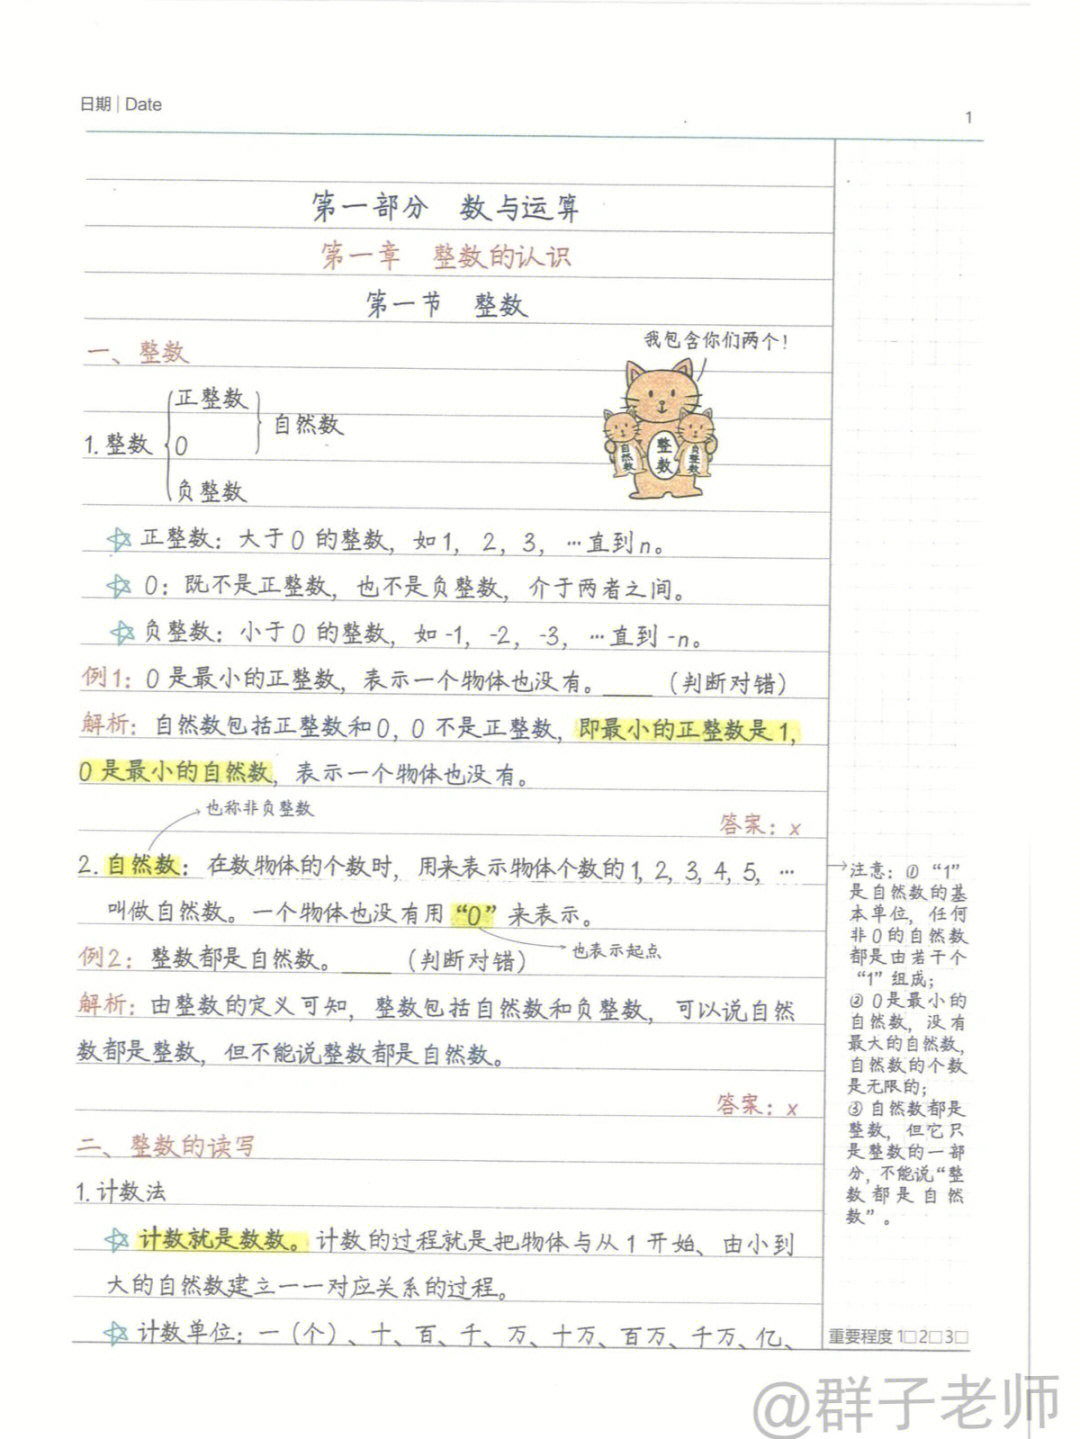 日期 | Date
1
第一部分 数与运算
第一章 整数的认识
第一节 整数
一、整数
我包含你们两个！
正整数
1.整数
0
自然数
负整数
自然数
整数
负整数
正整数：大于0的整数，如1，2，3，…直到n。
0：既不是正整数，也不是负整数，介于两者之间。
负整数：小于0的整数，如-1，-2，-3，…直到-n。
例1：0是最小的正整数，表示一个物体也没有。____（判断对错）
解析：自然数包括正整数和0，0不是正整数，即最小的正整数是1，
0是最小的自然数，表示一个物体也没有。
也称非负整数
答案：x
2.自然数：在数物体的个数时，用来表示物体个数的1，2，3，4，5，…
叫做自然数。一个物体也没有用“0”来表示。
也表示起点
例2：整数都是自然数。____（判断对错）
解析：由整数的定义可知，整数包括自然数和负整数，可以说自然
数都是整数，但不能说整数都是自然数。
答案：x
二、整数的读写
1.计数法
计数就是数数。计数的过程就是把物体与从1开始、由小到
大的自然数建立一一对应关系的过程。
计数单位：一（个）、十、百、千、万、十万、百万、千万、亿、
注意：①“1”
是自然数的基
本单位，任何
非0的自然数
都是由若干个
“1”组成；
②0是最小的
自然数，没有
最大的自然数，
自然数的个数
是无限的；
③自然数都是
整数，但它只
是整数的一部
分，不能说“整
数都是自然
数”。
重要程度 1□2□3□
@群子老师